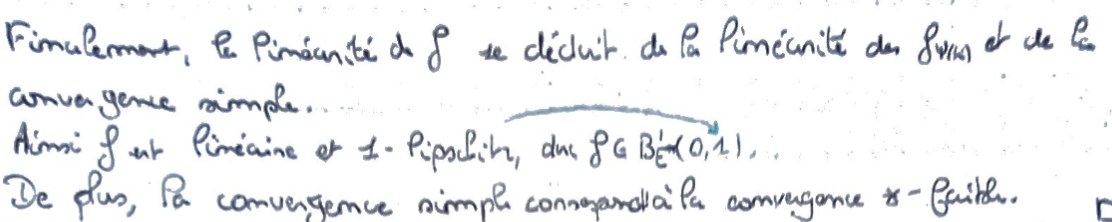 Finalement, la linéarité de f se déduit de la linéarité des f_ψ(n) et de la
convergence simple.
Ainsi f est linéaire et 1-lipschitz, donc f ∈ B_E'(0,1).
De plus, la convergence simple correspond à la convergence *-faible.